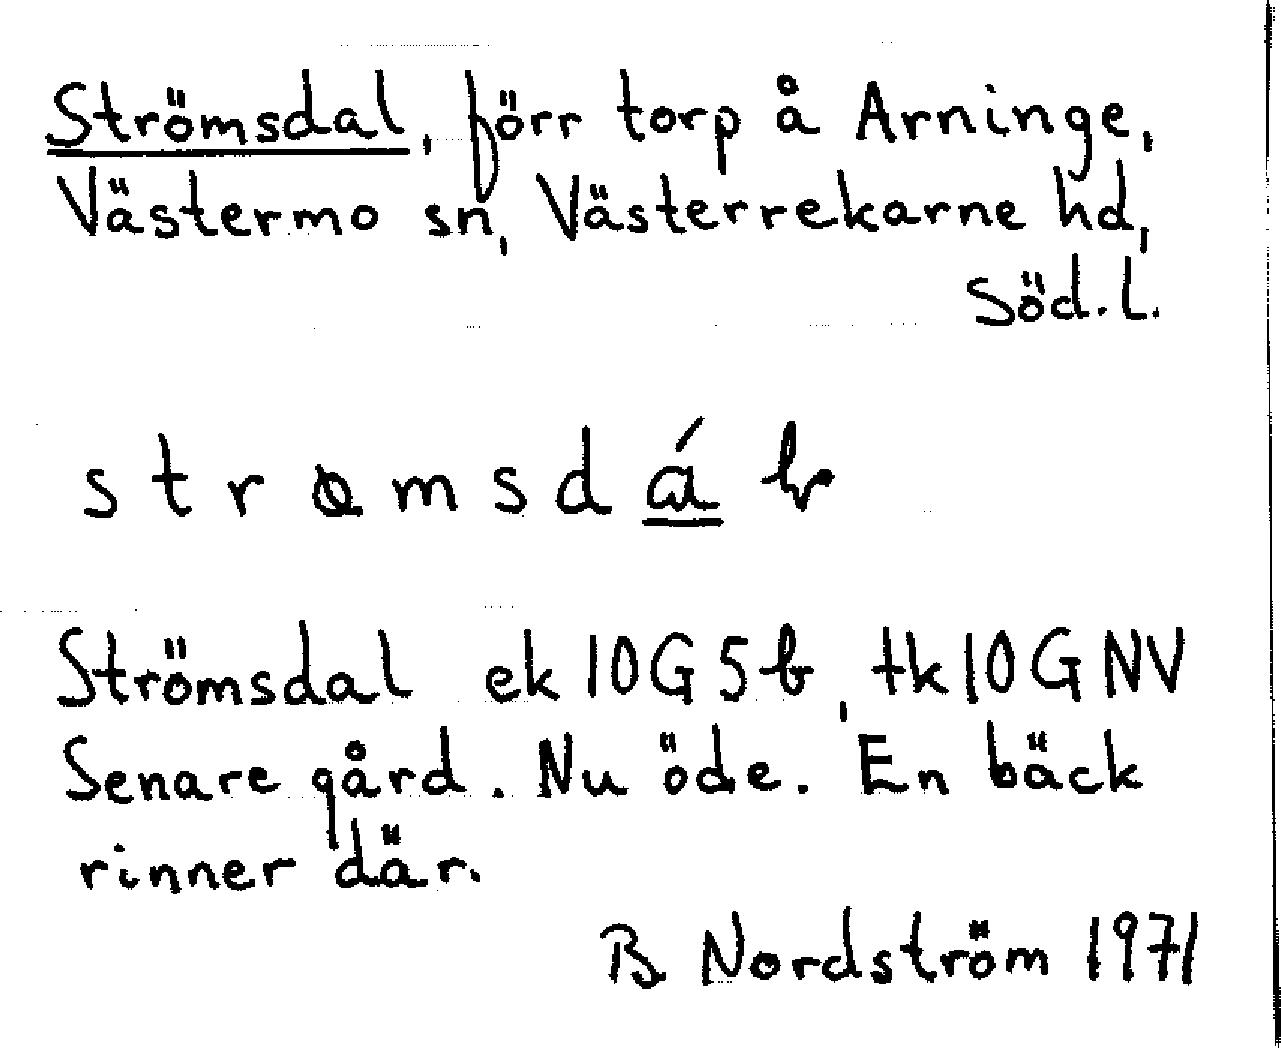 Strömsdal, förr torp å Arninge,
Västermo sn, Västerrekarne hd,
Söd.l.
Strömsdal ek 10G5b, tk 10G NV
Senare gård. Nu öde. En bäck
rinner där.
B Nordström 1971